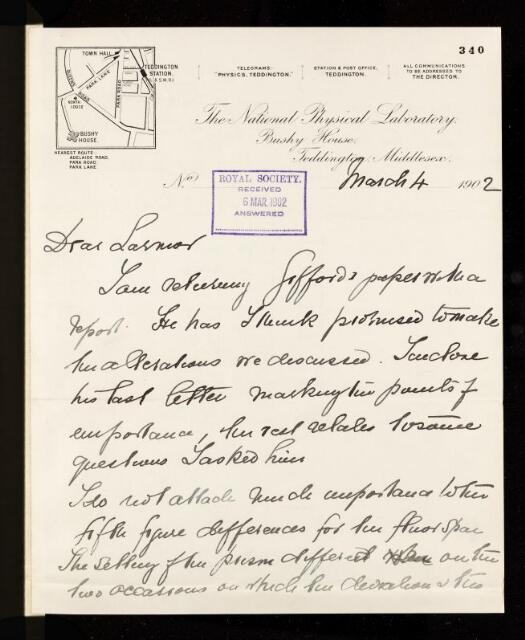 340
TOWN HALL
TEDDINGTON
STATION
(L & S.W.R.)
QUEENS ROAD
PARK LANE
PARK ROAD
BUSHY
HOUSE
NEAREST ROUTE
ADELAIDE ROAD,
PARK ROAD
PARK LANE
TELEGRAMS:
"PHYSICS, TEDDINGTON."
STATION & POST OFFICE,
TEDDINGTON.
ALL COMMUNICATIONS
TO BE ADDRESSED TO
THE DIRECTOR.
The National Physical Laboratory,
Bushy House,
Teddington, Middlesex.
No March 4 1902
ROYAL SOCIETY.
RECEIVED
6 MAR 1902
ANSWERED
Dear Larmor
I am returning Gifford's paper with a
report. He has I think promised to make
the alterations we discussed. I enclose
his last letter marking the points of
importance, the rest relates to some
questions I asked him
I do not attach much importance to the
fifth figure differences for the fluor spar
The setting of the prism different on the
two occasions on which the deviation &